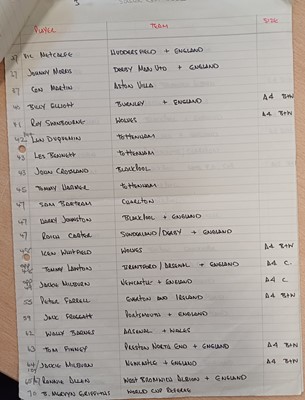 PLAYER TEAM SIZE
37 VIC METCALFE HUDDERSFIELD + ENGLAND
37 JOHNNY MORRIS DERBY MAN UTD + ENGLAND
37 CON MARTIN ASTON VILLA
40 BILLY ELLIOTT BURNLEY + ENGLAND A4 B+W
41 ROY SHAWBOURNE WOLVES A4 B+W
42 LEN DUQUEMIN TOTTENHAM
43 LES BENNETT TOTTENHAM
43 JOHN CROSLAND BLACKPOOL
45 TOMMY HARMER TOTTENHAM
47 SAM BARTRAM CHARLTON
47 HARRY JOHNSTON BLACKPOOL + ENGLAND
47 RAICH CARTER SUNDERLAND/DERBY + ENGLAND
KEN WHITFIELD WOLVES A4 B+W
TOMMY LAWTON BRENTFORD/ARSENAL + ENGLAND A4 C
JACKIE MILBURN NEWCASTLE + ENGLAND A4 C
55 PETER FARRELL EVERTON AND IRELAND A4 B+W
59 JACK FROGGATT PORTSMOUTH + ENGLAND
62 WALLY BARNES ARSENAL + WALES
63 TOM FINNEY PRESTON NORTH END + ENGLAND A4 B+W
64 JACKIE MILBURN NEWCASTLE + ENGLAND A4 B+W
65 RONNIE ALLEN WEST BROMWICH ALBION + ENGLAND
70 B. MERVYN GRIFFITHS WORLD CUP REFEREE